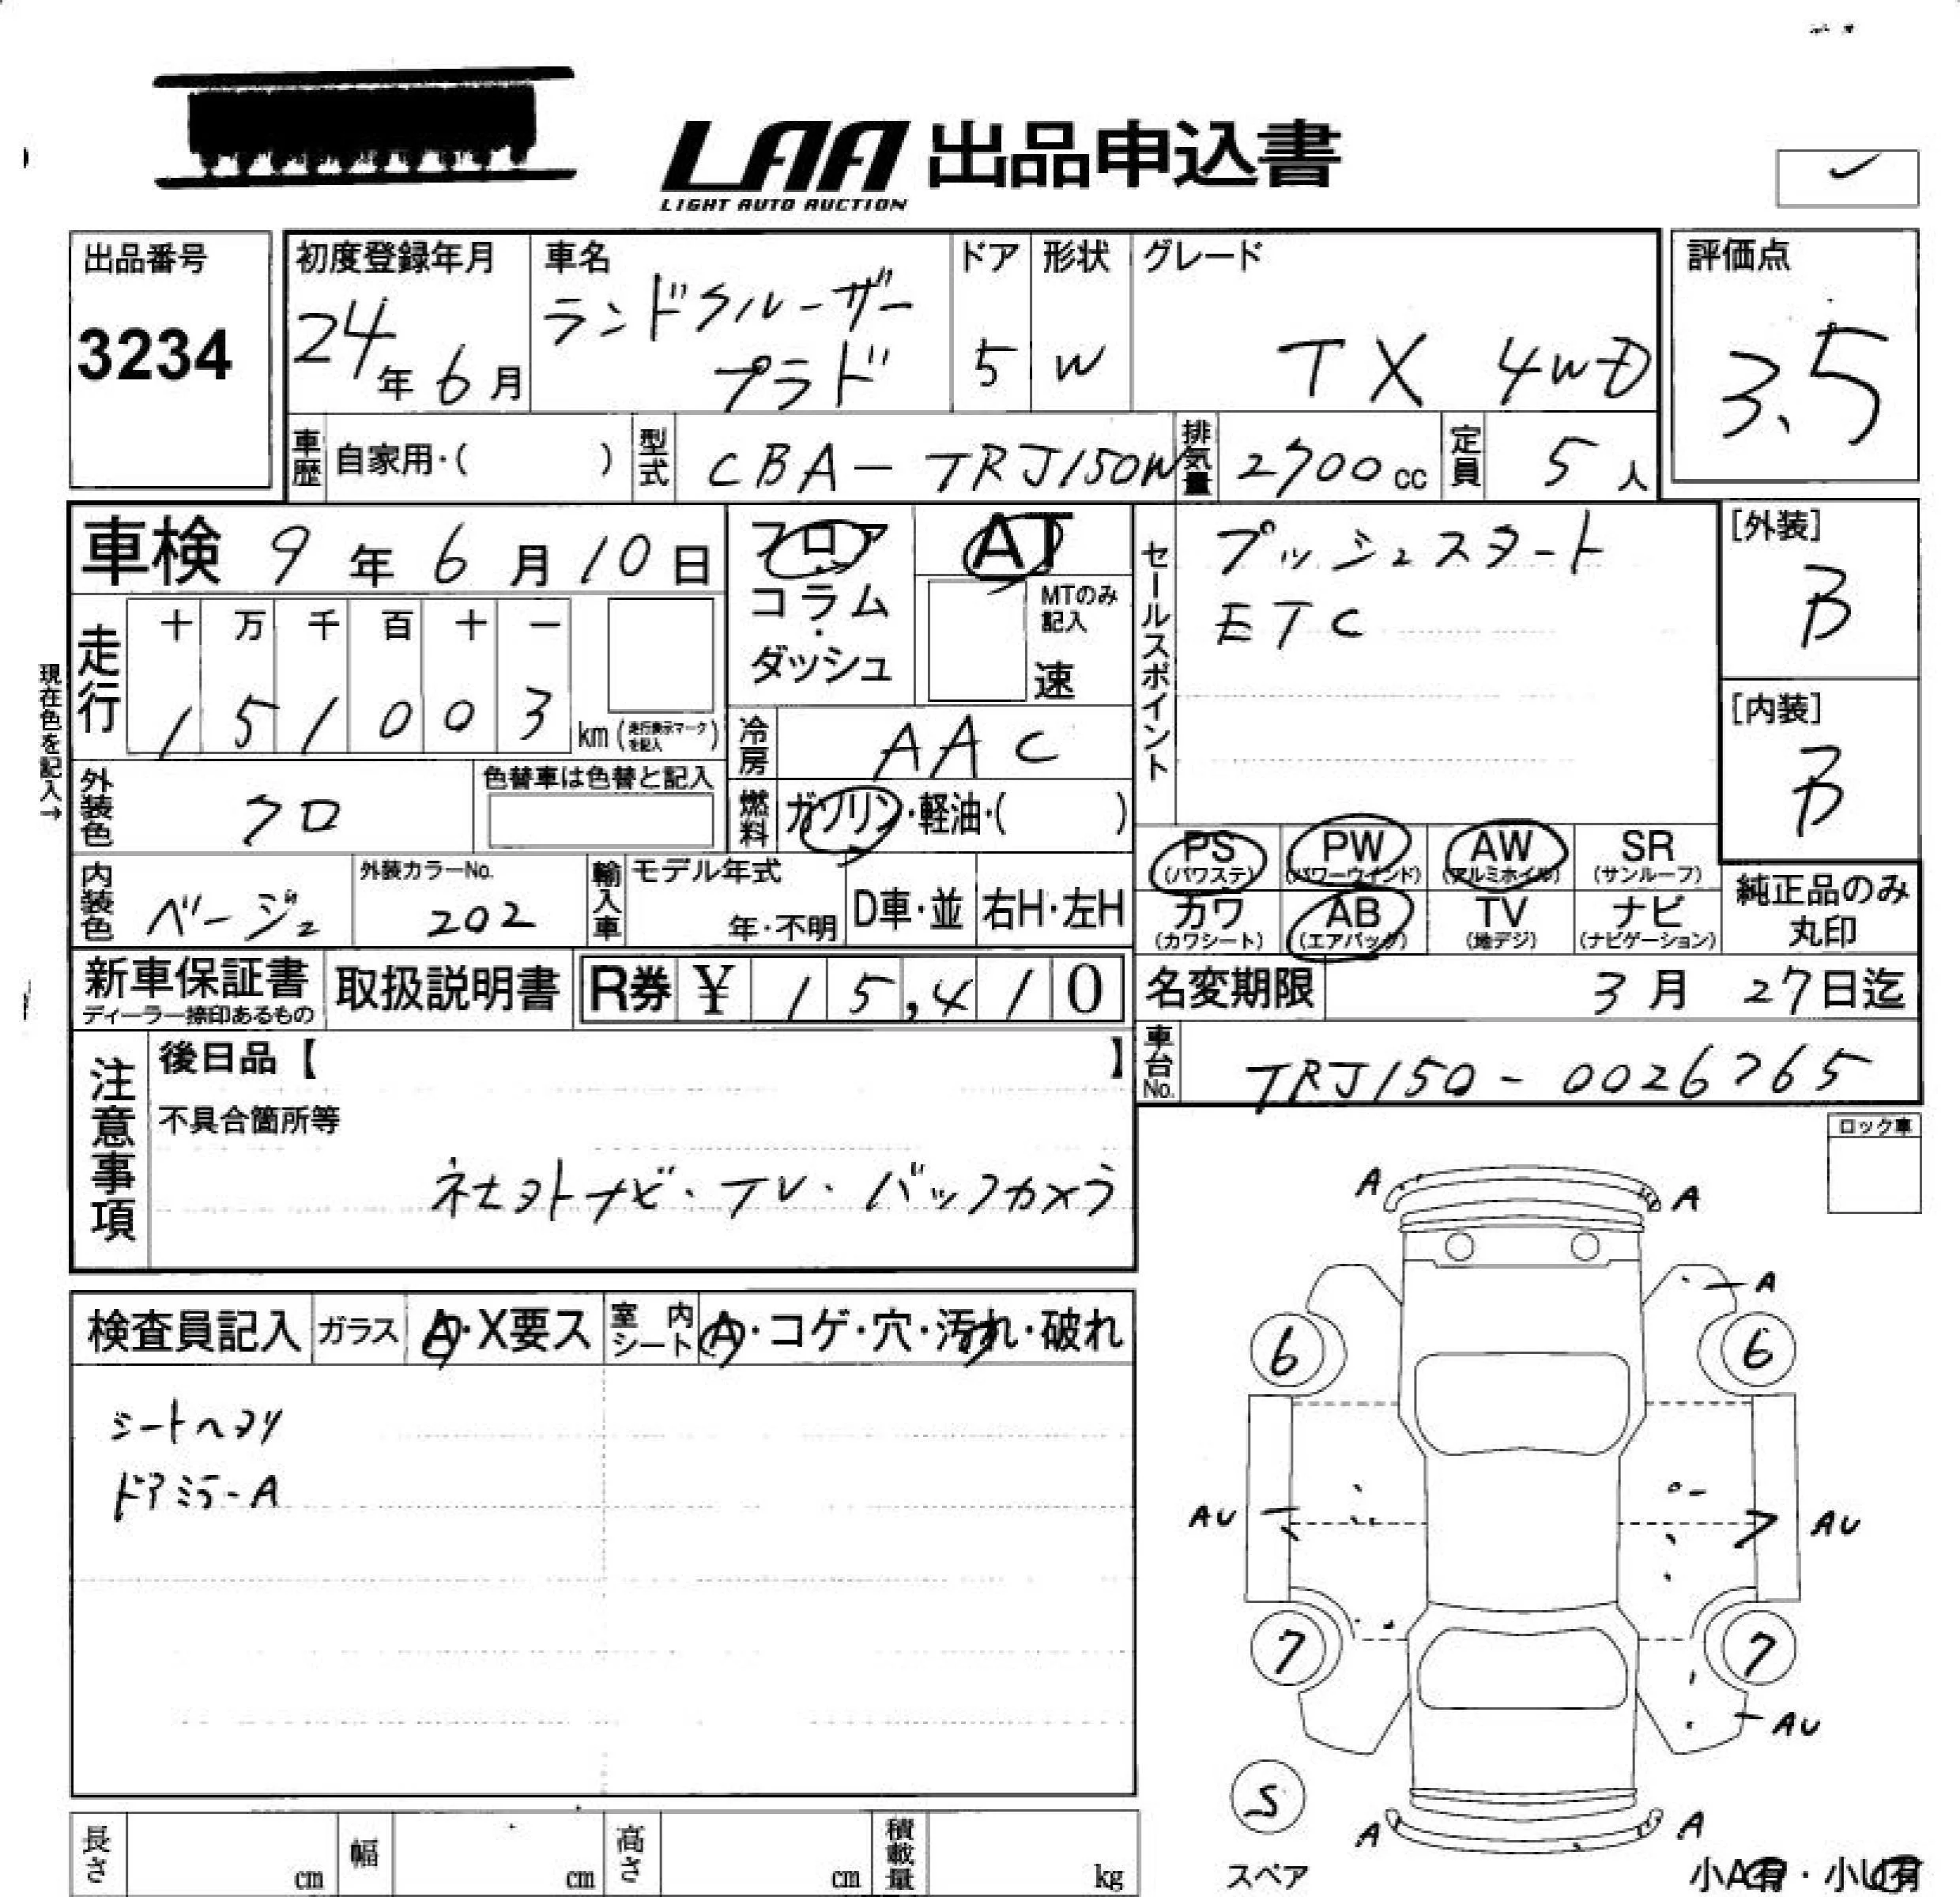 LAA 出品申込書
LIGHT AUTO AUCTION
出品番号
3234
初度登録年月
24年 6月
車名
ランドクルーザー
プラド
ドア
5
形状
W
グレード
TX 4WD
評価点
3.5
車歴 自家用・( )
型式 CBA-TRJ150W
排気量 2700cc
定員 5人
車検 9年 6月 10日
フロア
コラム
・
ダッシュ
AT
MTのみ
記入
速
セールスポイント
プッシュスタート
ETC
[外装]
B
[内装]
B
現在色を記入→
走行
十 万 千 百 十 一
1 5 1 0 0 3 km (走行表示マークを記入)
冷房 AAC
外装色 クロ
色替車は色替と記入
燃料 ガソリン・軽油・( )
PS (パワステ)
PW (パワーウインド)
AW (アルミホイル)
SR (サンルーフ)
カワ (カワシート)
AB (エアバック)
TV (地デジ)
ナビ (ナビゲーション)
純正品のみ
丸印
内装色 ベージュ
外装カラーNo.
202
輸入車
モデル年式
年・不明
D車・並
右H・左H
新車保証書
ディーラー捺印あるもの
取扱説明書
R券 ¥ 15,410
名変期限 3月 27日迄
車台No. TRJ150-0026765
注意事項
後日品【 】
不具合箇所等
ネセヌトナビ・TV・バックカメラ
ロック車
検査員記入
ガラス A・X要ス
室内シート A・コゲ・穴・汚れ・破れ
シートヘタリ
ドアミラーA
A
A
A
6
6
AU
AU
7
7
AU
S
スペア
A
A
小A有・小U有
長さ cm
幅 cm
高さ cm
積載量 kg